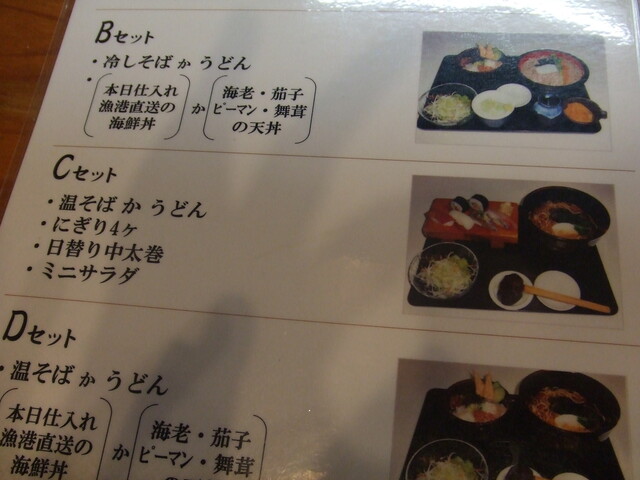 Bセット
・冷しそば か うどん
・
本日仕入れ
漁港直送の
海鮮丼
か
海老・茄子
ピーマン・舞茸
の天丼
Cセット
・温そば か うどん
・にぎり4ヶ
・日替り中太巻
・ミニサラダ
Dセット
・温そば か うどん
本日仕入れ
漁港直送の
海鮮丼
か
海老・茄子
ピーマン・舞茸